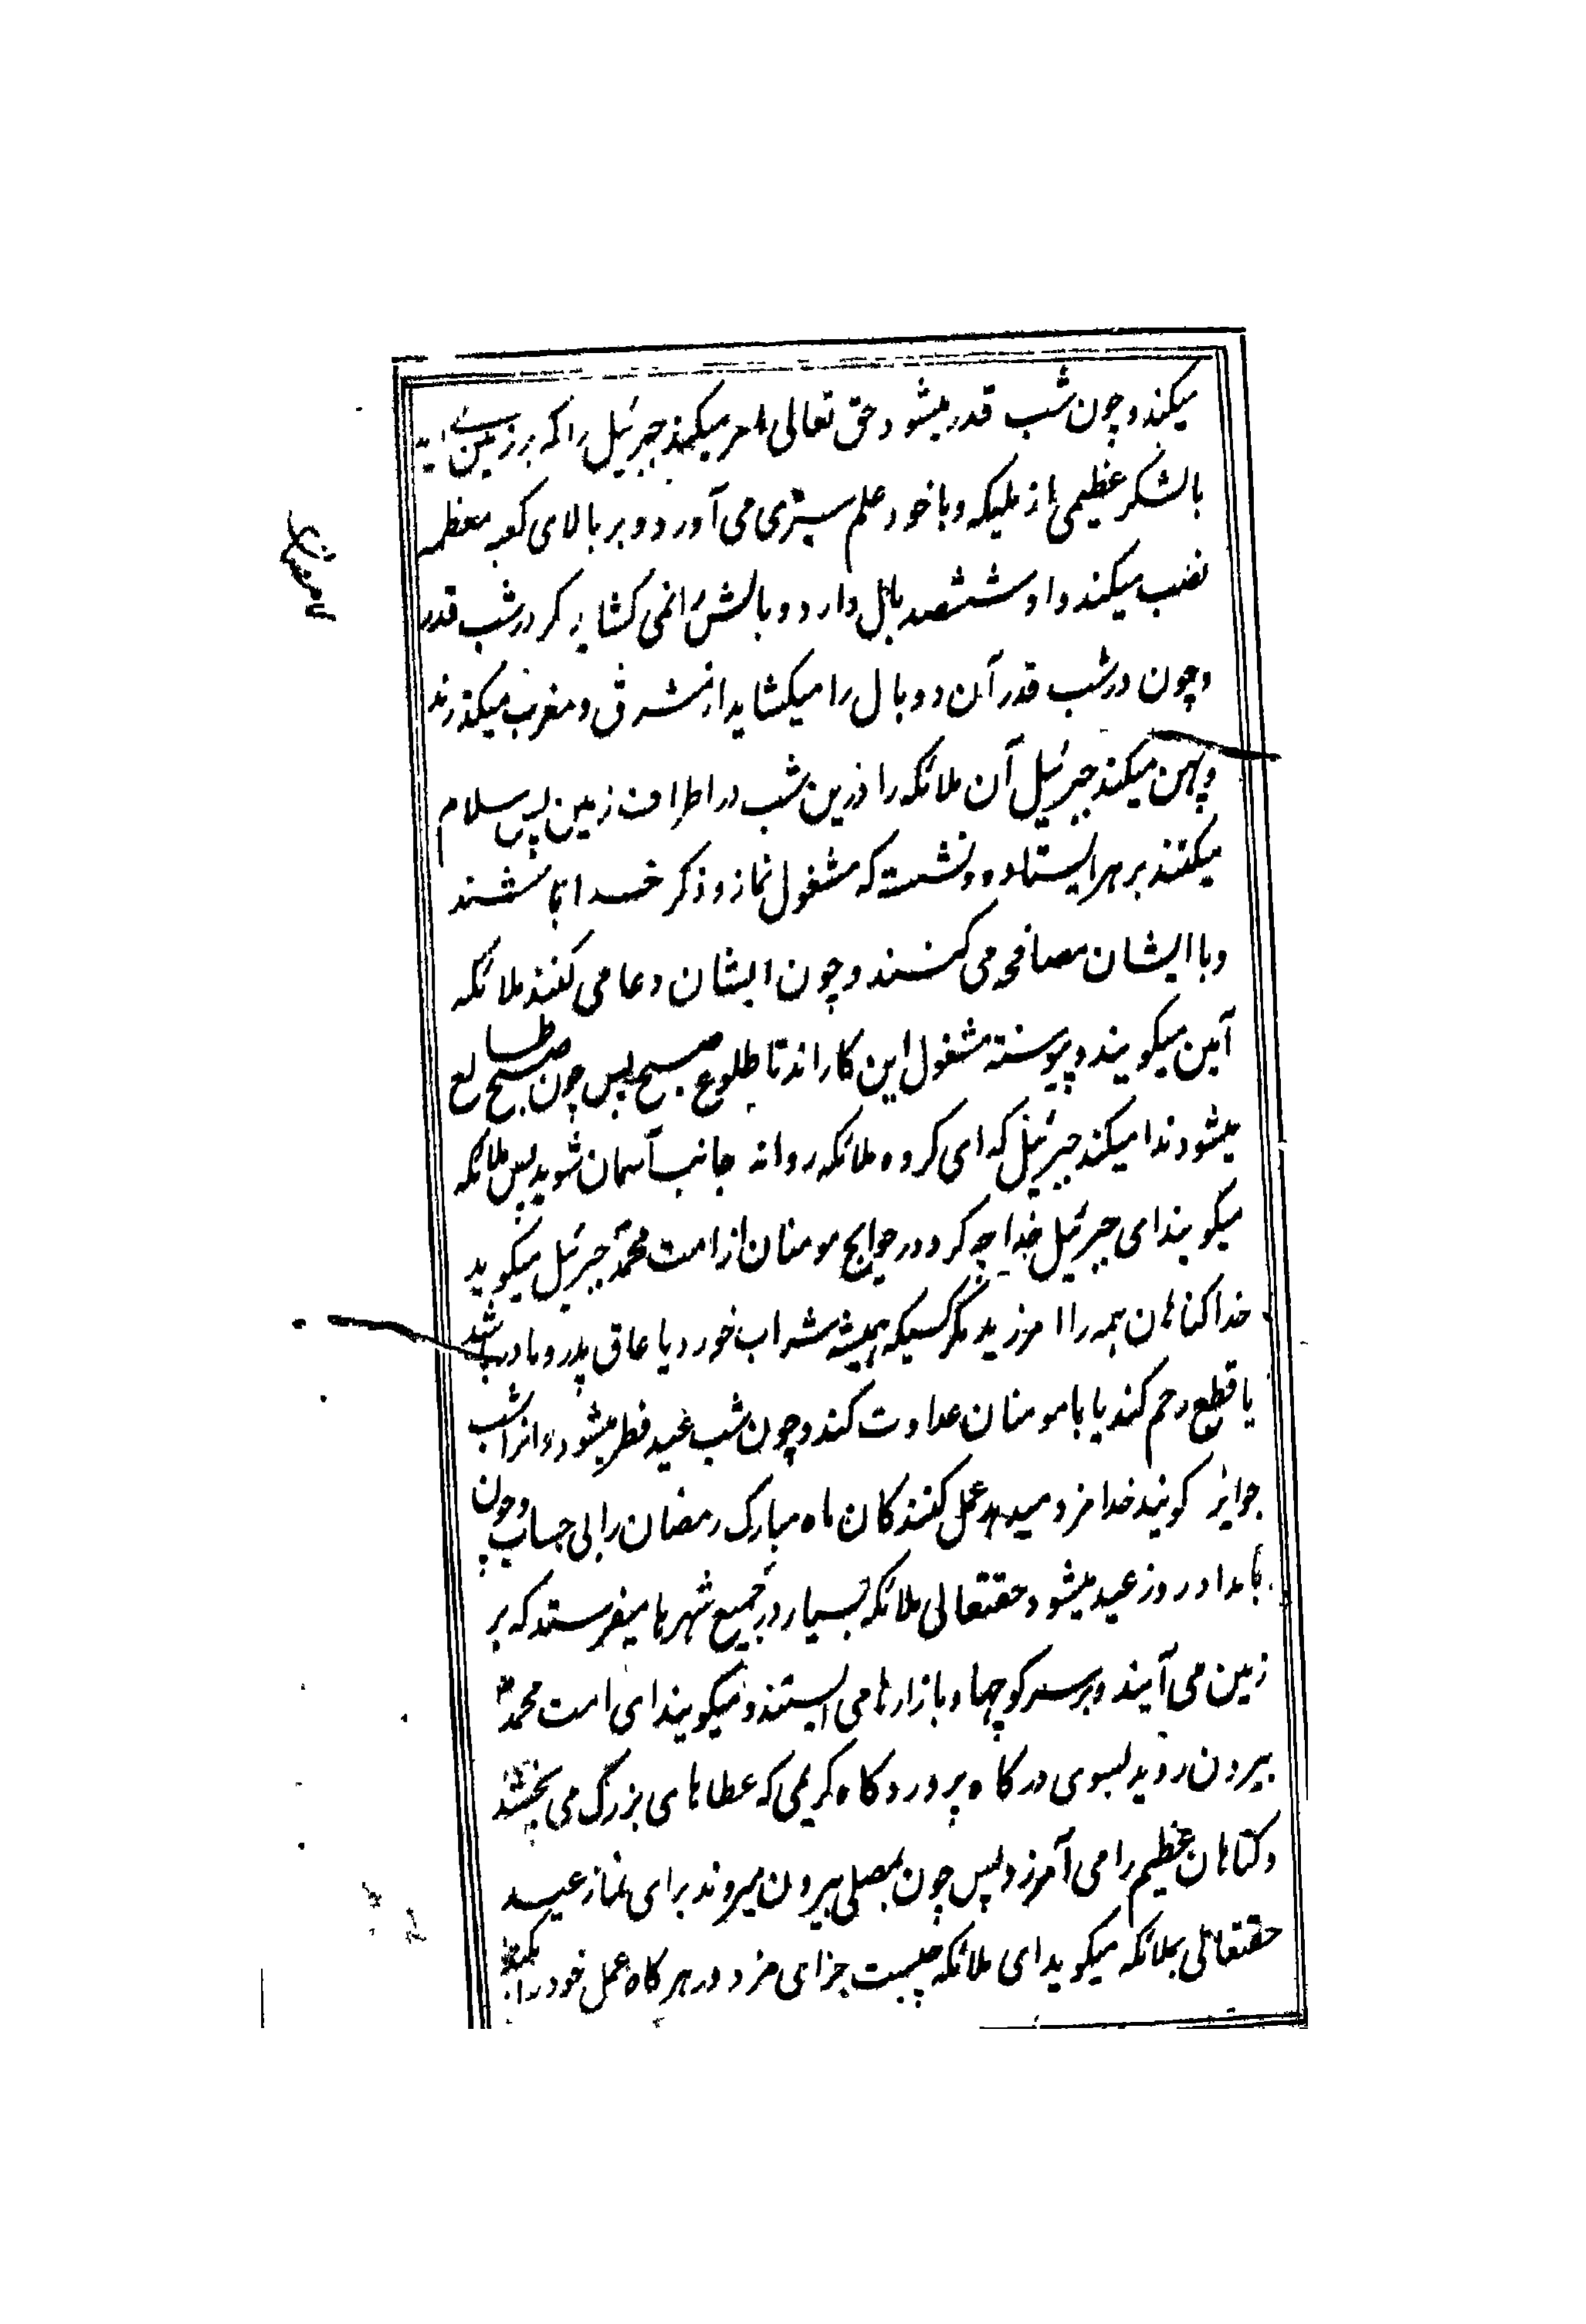 میکند و چون شب قدر میشود حق تعالی امر میکند جبرئیل را که بر زمین می اید
بالشکر عظیمی از ملیکه و با خود علم سبزی می آورد و بر بالای کعبه معظمه
نصب میکند و او ششصد بال دارد و دو بالش را نمی کشاید مکر در شب قدر
و چون در شب قدر آن دو بال را میکشاید از مشرق و مغرب میکذرند
و پهن میکند جبرئیل آن ملائکه را درین شب در اطراف زمین پس سلام
میکنند بر هر ایستاده و نشسته که مشغول نماز و ذکر خدا باشند
و با ایشان مصافحه می کنند و چون ایشان دعا می کنند ملائکه
آمین میکویند و پیوسته مشغول این کار اند تا طلوع صبح پس چون صبح طالع
میشود ندا میکند جبرئیل که ای کروه ملائکه روانه جانب آسمان شوید پس ملائکه
میکویند ای جبرئیل خدا چه کرد در حوایج مومنان از امت محمد جبرئیل میکوید
خدا کناهان همه را امرزید مکر کسیکه همیشه شراب خورد یا عاق پدر و مادر باشد
یا قطع رحم کند یا با مومنان عداوت کند و چون شب عید فطر میشود و انرا شب
جوایز کویند خدا مزد میدهد عمل کنندکان ماه مبارک رمضان را بی حساب و چون
بامداد روز عید میشود حقتعالی ملائکه بسیار در جمیع شهرها میفرستد که بر
زمین می آیند و بر سر کوچها و بازارها می ایستند و میکویند ای امت محمد
بیرون روید بسوی درکاه پروردکاه کریمی که عطاهای بزرگ می بخشد
و کناهان عظیم را می آمرزد پس چون بمصلی بیرون میروند برای نماز عید
حقتعالی بملائکه میکوید ای ملائکه چیست جزای مزدور هر کاه عمل خود را بکند